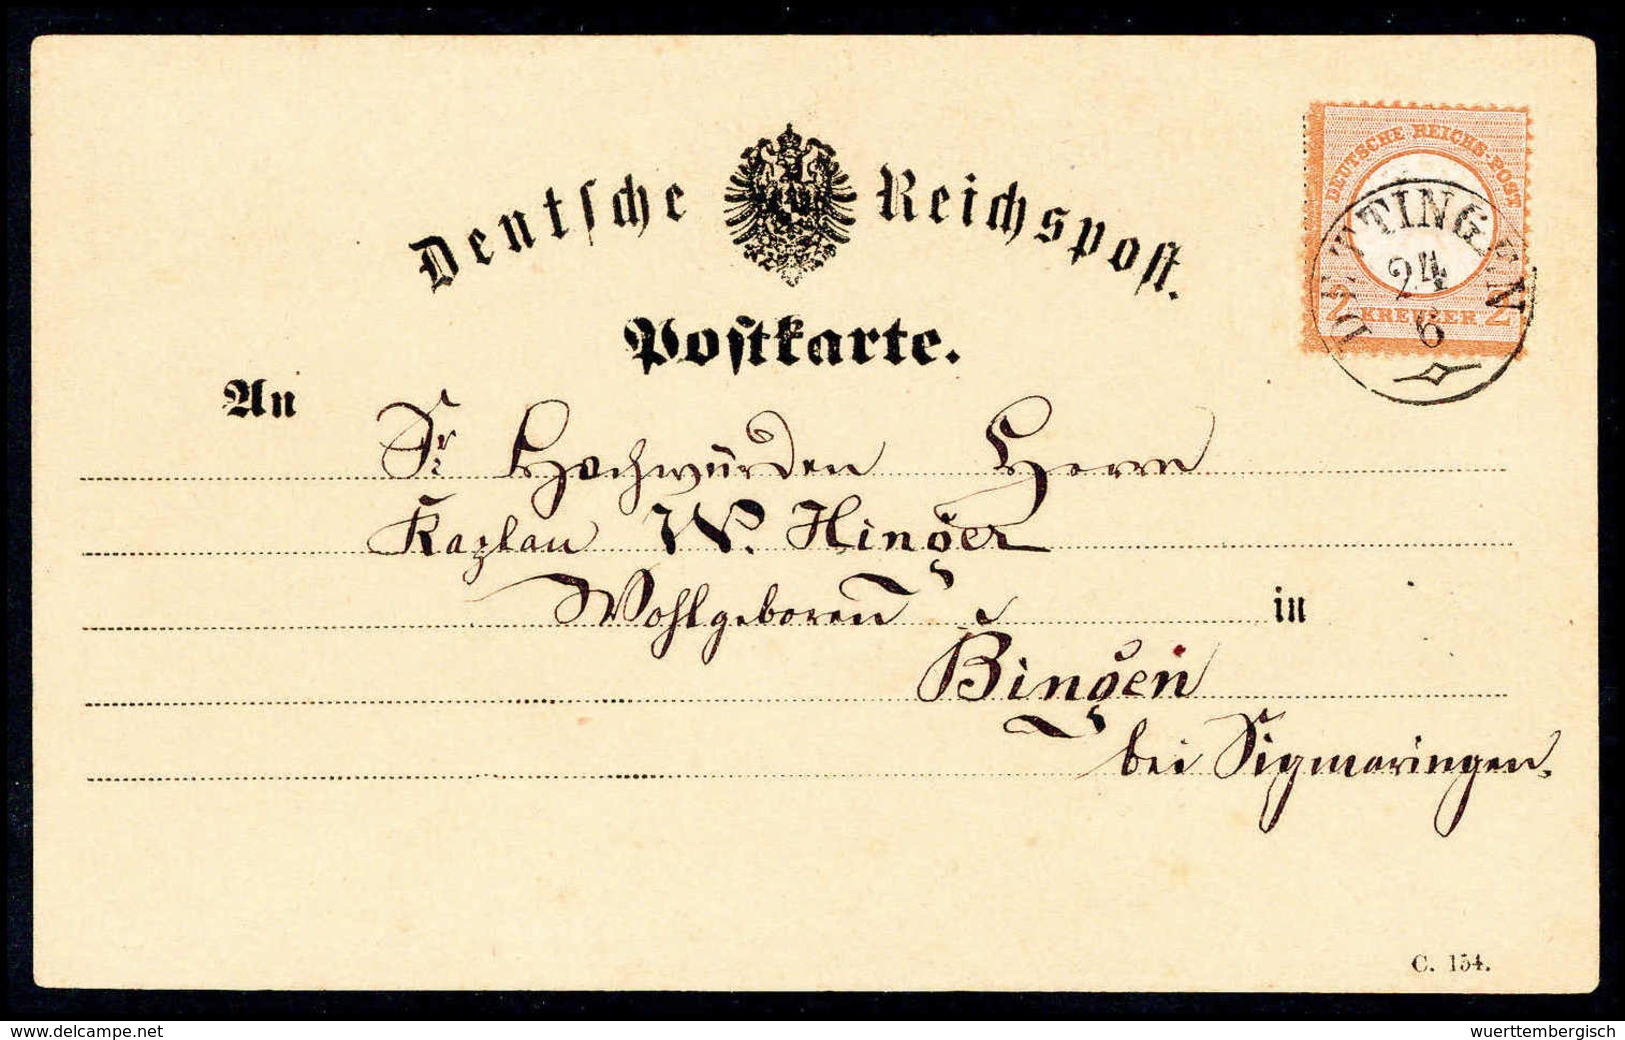 Deutsche Reichspost.
DEUTSCHE REICHS-POST
DETTINGEN
24
6
2 KREUZER 2
Postkarte.
An
Sr. Hochwürden Herrn
Kaplan W. Hinger
Wohlgeboren
in
Bingen
bei Sigmaringen.
C. 154.
www.delcampe.net
wuerttembergisch